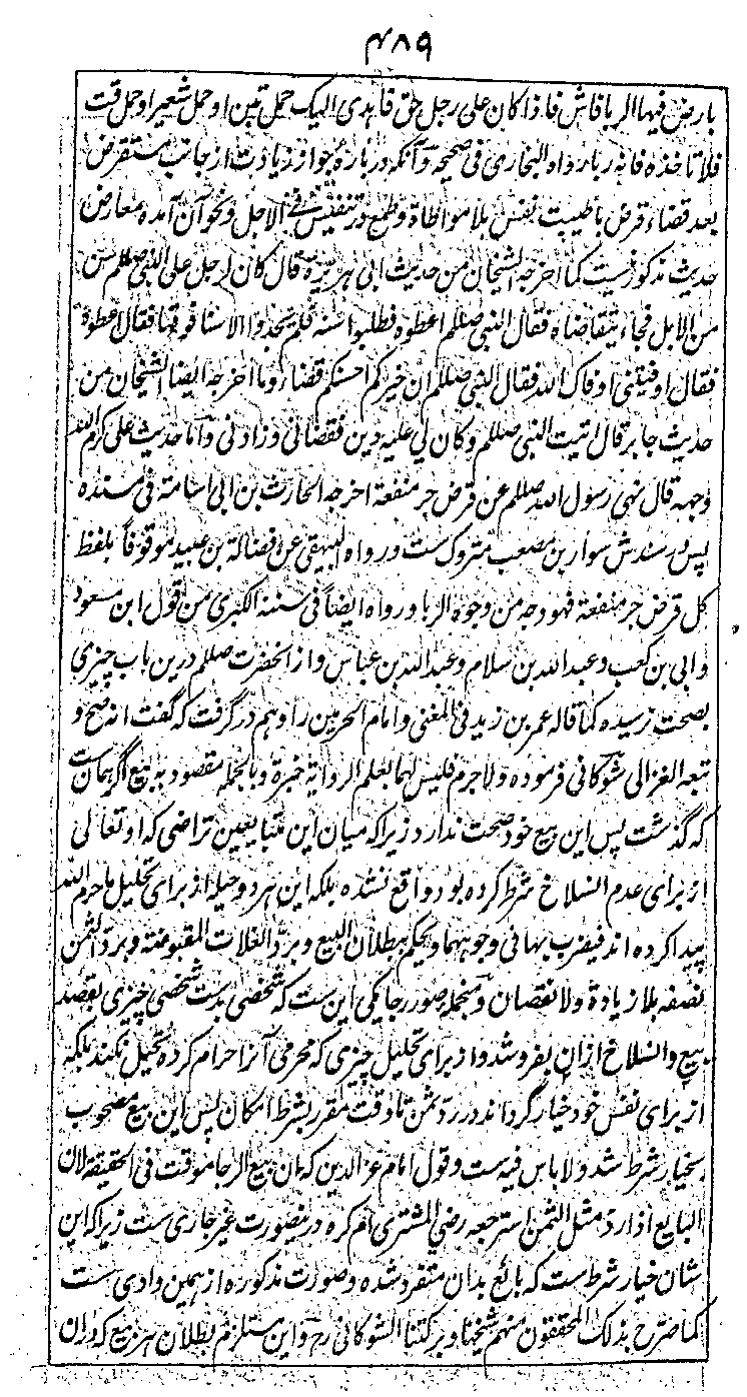 ۴۸۹
بارض فیها الربا فاش فاذا کان علی رجل حق فاهدی الیک حمل تبن او حمل شعیر او حمل قت
فلا تاخذه فانه ربا رواه البخاری فی صحیحه و آنکه درباره جواز زیادت از جانب مستقرض
بعد قضاء قرض با طیبت نفس بلا مواطاة و طمع در تنفیس فی الاجل و نحو آن آمده معارض
حدیث مذکور نیست کما اخرجه الشیخان من حدیث ابی هریرة قال کان لرجل علی النبی صللم سن
من الابل فجاء یتقاضاه فقال النبی صللم اعطوه فطلبوا سنه فلم یجدوا الا سنا فوقها فقال اعطوه
فقال اوفیتنی اوفاک الله فقال النبی صللم ان خیرکم احسنکم قضاء و ما اخرجه ایضا الشیخان من
حدیث جابر قال اتیت النبی صللم و کان لی علیه دین فقضانی و زادنی و اما حدیث علی کرم الله
وجهه قال نهی رسول الله صللم عن قرض جر منفعة اخرجه الحارث بن ابی اسامة فی مسنده
پس در سندش سوار بن مصعب متروک ست و رواه البیهقی عن فضالة بن عبید موقوفاً بلفظ
کل قرض جر منفعة فهو وجه من وجوه الربا و رواه ایضاً فی سننه الکبری من قول ابن مسعود
و ابی بن کعب و عبد الله بن سلام و عبد الله بن عباس و از آنحضرت صللم درین باب چیزی
بصحت نرسیده کما قاله عمر بن زید فی المغنی و امام الحرمین را وهم درگرفت که گفت انه صح و
تبعه الغزالی شوکانی فرموده و لا جرم فلیس لهما بعلم الروایة خبرة و بالجمله مقصود به بیع اگر همان ست
که گذشت پس این بیع خود صحت ندارد زیرا که میان این متبایعین تراضی که او تعالی
از برای عدم انسلاخ شرط کرده بود واقع نشده بلکه این هر دو حیله از برای تحلیل ما حرم الله
پیدا کرده اند فیضرب بها فی وجوههما و یحکم ببطلان البیع و برد الغلات المقبوضة و برد الثمن
نصفه بلا زیادة و لا نقصان و منجمله صور رجا یکی این ست که شخصی بدست شخصی چیزی بقصد
بیع و انسلاخ ازان بفروشد و از برای تحلیل چیزی که محرمی آنرا حرام کرده تحیل نکند بلکه
از برای نفس خود خیار گرداند در رد ثمن تا وقت مقرر بشرط امکان پس این بیع مصحوب
بخیار شرط شد و لا باس فیه ست و قول امام عز الدین که ان بیع الرجا موقت فی الحقیقة لان
البایع اذا رد مثل الثمن استرجعه رضی المشتری ام کره درینصورت غیر جاری ست زیرا که این
شان خیار شرط ست که بائع بدان متفرد شده و صورت مذکوره از همین وادی ست
کما صرح بذلک المحققون منهم شیخنا و برکتنا الشوکانی رح و این مستلزم بطلان هر بیع که دران